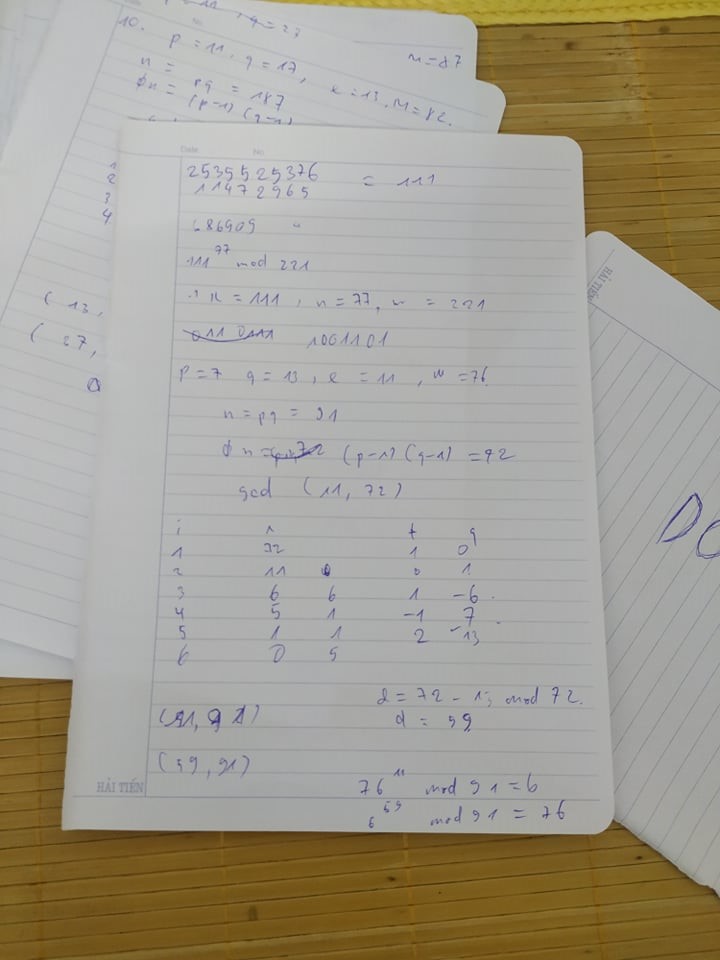 10. p = 11, q = 17, e = 13, M = 82.
M = 87
n = pq = 187
φn = (p-1) (q-1)
1
2
3
4.
( 13,
( 27,
Date No
2535525376 = 111
11472965
686909
111^77 mod 221
x = 111, n = 77, = 221
1001101
p = 7 q = 13, e = 11, M = 76.
n = pq = 91
φn = (p-1) (q-1) = 72
gcd (11, 72)
i r t q
1 72 1 0
2 11 0 1
3 6 6 1 -6
4 5 1 -1 7
5 1 1 2 -13
6 0 5
d = 72 - 13 mod 72.
d = 59
(59, 91)
76^11 mod 91 = 6
6^59 mod 91 = 76
HẢI TIẾN
HẢI TIẾN